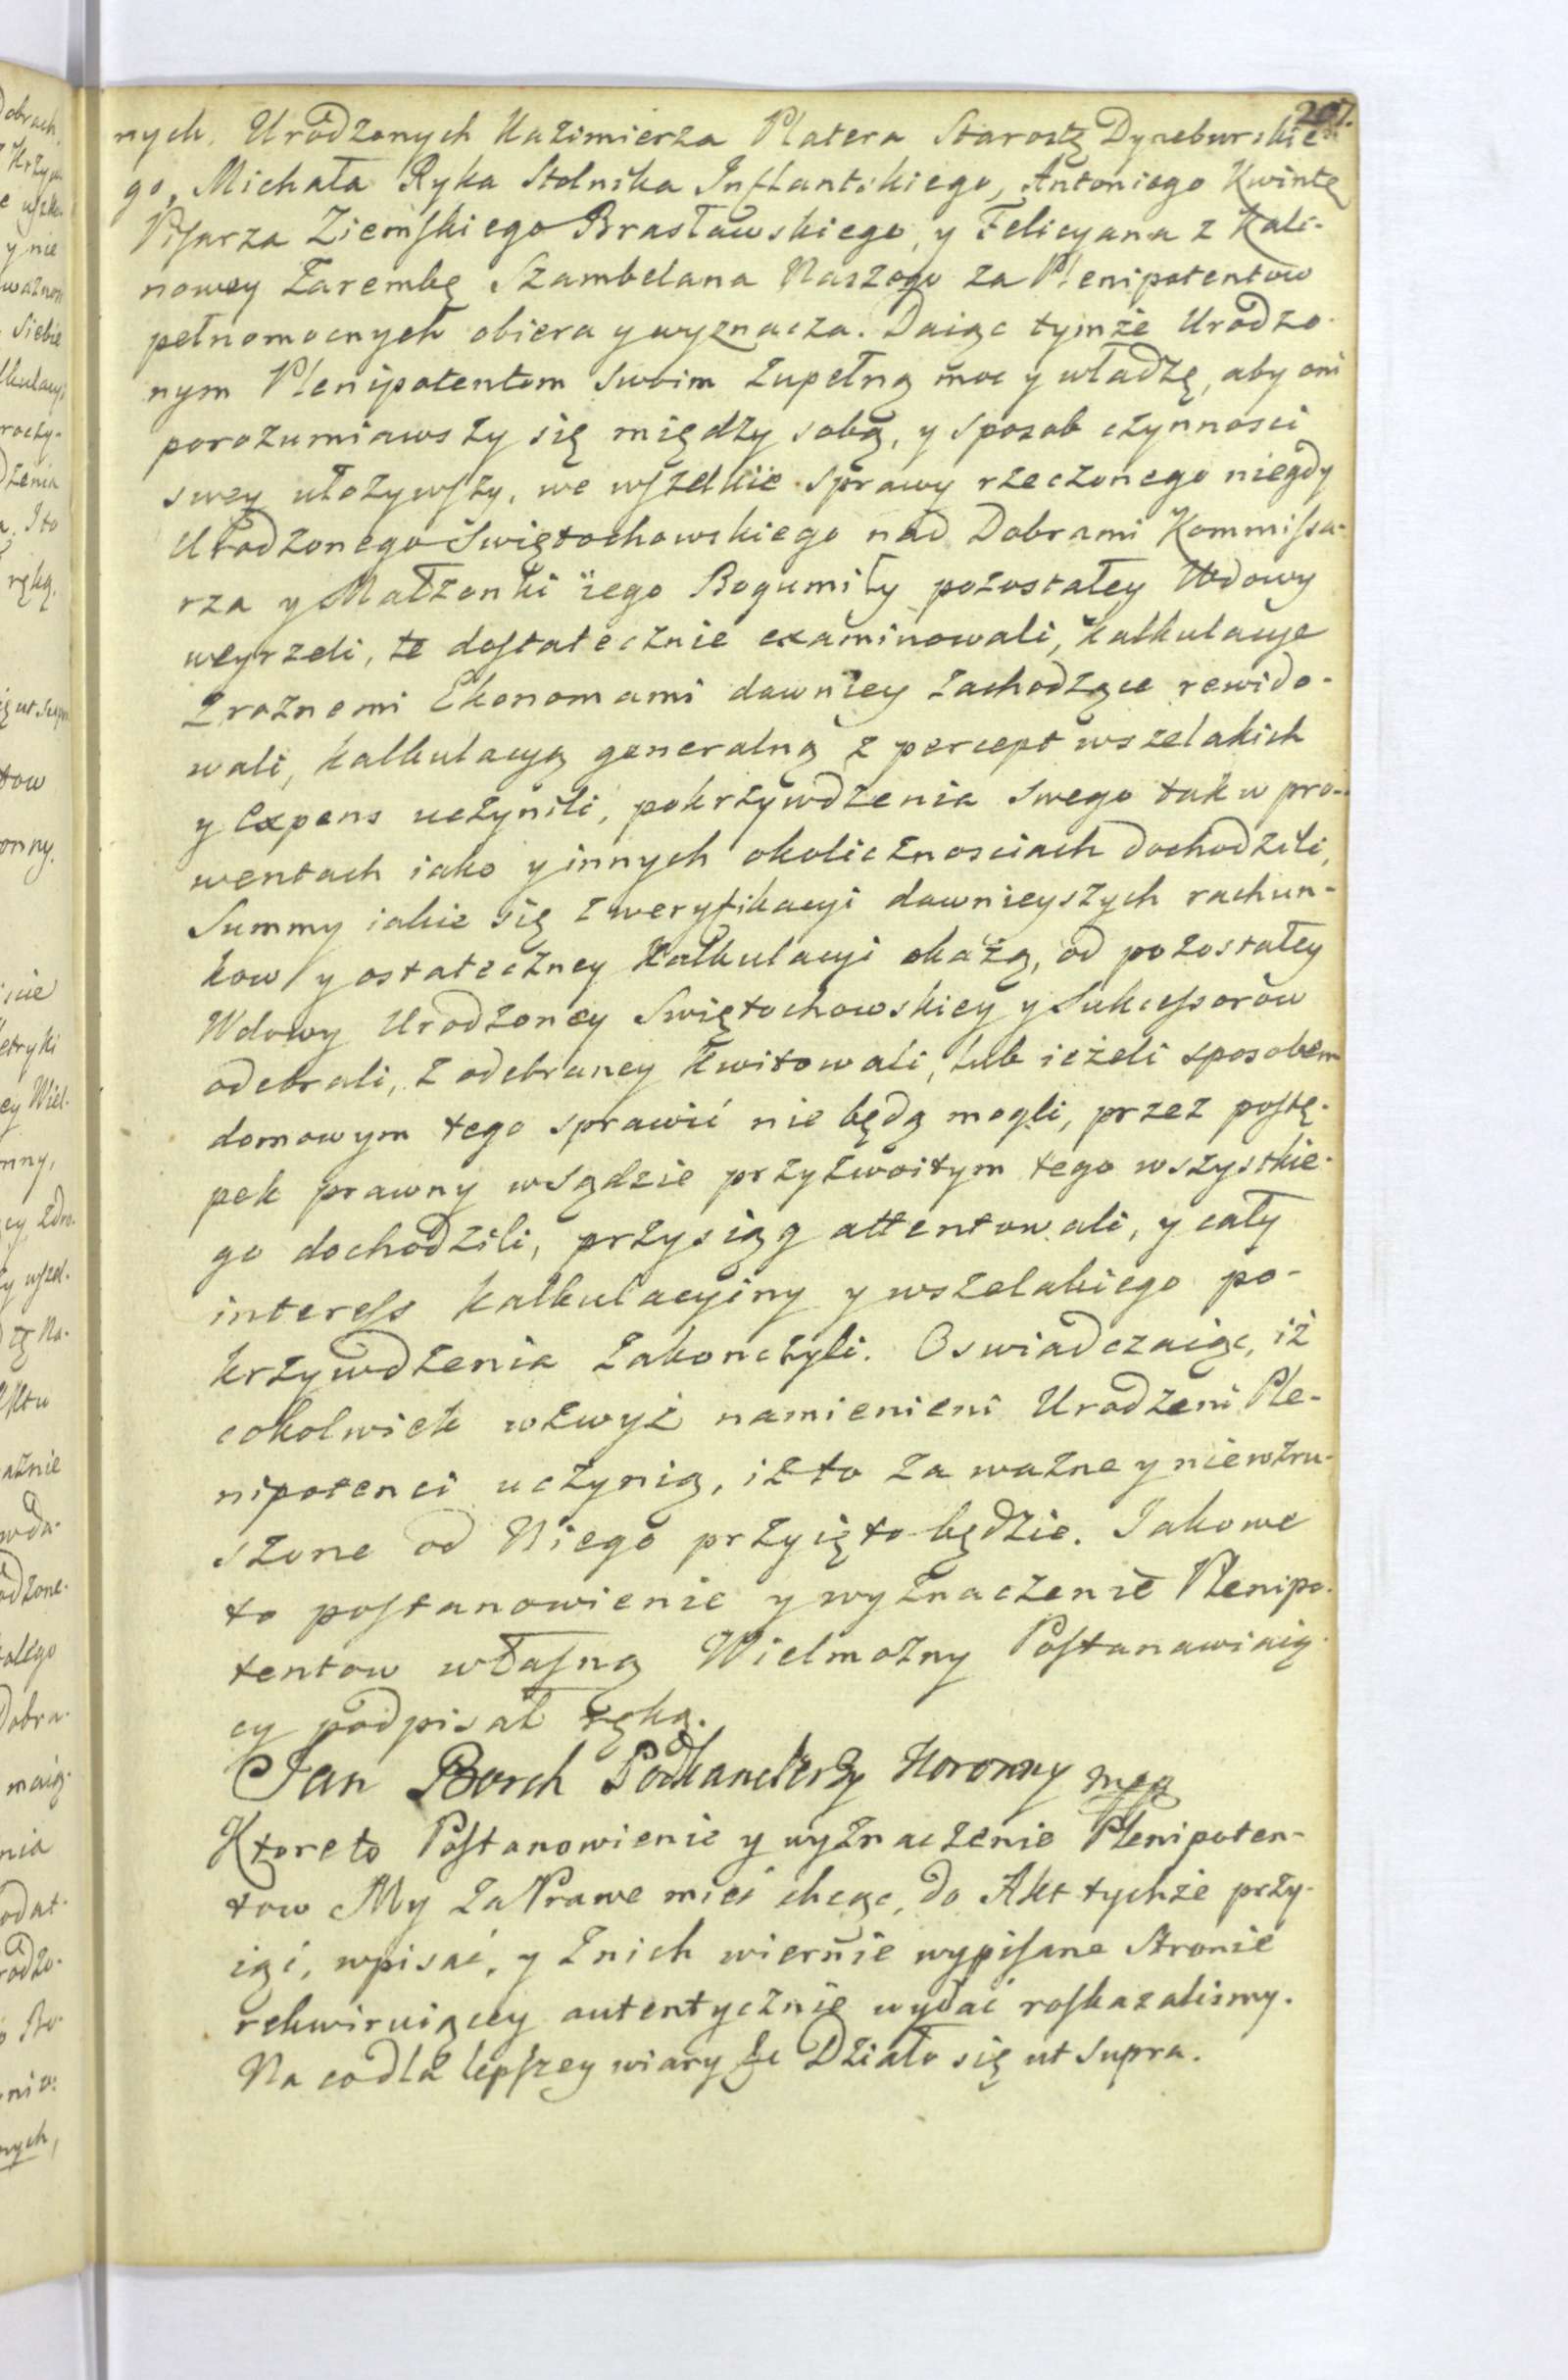 207.
nych. Urodzonych Kazimierza Platera Starostę Dyneburskie-
go, Michała Ryka Stolnika Inflantskiego, Antoniego Kwintę
Pisarza Ziemskiego Brasławskiego, y Felicyana z Kali-
nowey Zarembę Szambelana Naszego za Plenipotentow
pełnomocnych obiera y wyznacza. Daiąc tymże Urodzo-
nym Plenipotentom swoim zupełną moc y władzę, aby oni
porozumiawszy się między sobą, y sposob czynnosci
swey ułożywszy, we wszelkie sprawy rzeczonego niegdy
Urodzonego Swiętochowskiego nad Dobrami Kommissa-
rza y Małzonki iego Bogumiły pozostałey Wdowy
weyrzeli, te dostatecznie examinowali, kalkulacye
z roznemi Ekonomami dawniey zachodzące rewido-
wali, kalkulacyą generalną z percept wszelakich
y Expens uczynili, pokrzywdzenia swego tak w pro-
wentach iako y innych okolicznosciach dochodzili,
Summy iakie się z weryfikacyi dawnieyszych rachun-
kow y ostateczney Kalkulacyi okażą, od pozostałey
Wdowy Urodzoney Swiętochowskiey y Sukcessorów
odebrali, z odebraney kwitowali, lub ieżeli sposobem
domowym tego sprawić nie będą mogli, przez postę-
pek prawny w Sądzie przyzwoitym tego wszystkie-
go dochodzili, przysiąg attentowali, y cały
interess kalkulacyiny y wszelakiego po-
krzywdzenia zakonczyli. Oswiadczaiąc, iż
cokolwiek wzwyż namienieni Urodzeni Ple-
nipotenci uczynią, iż to za ważne y niewzru-
szone od Niego przyięto będzie. Jakowe
to postanowienie y wyznaczenie Plenipo-
tentow własną Wielmożny Postanawiaią-
cy podpisał ręką.
Jan Borch Podkanclerzy Koronny mpp
Ktore to Postanowienie y wyznaczenie Plenipoten-
tow My za Prawe mieć chcąc, do Akt tychże przy-
iąć, wpisać, y z nich wiernie wypisane Stronie
rekwiruiącey autentycznie wydać roskazalismy.
Na co dla lepszey wiary &c Działo się ut supra.